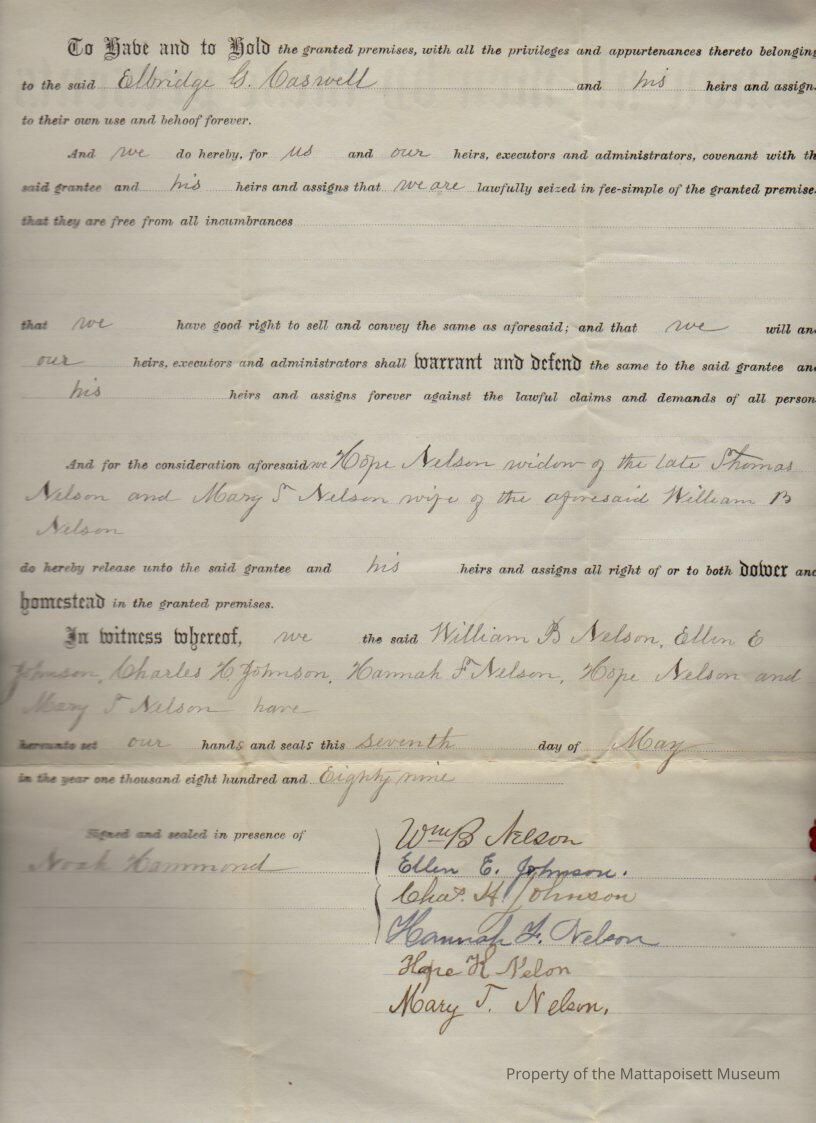 To Have and to Hold the granted premises, with all the privileges and appurtenances thereto belonging
to the said Elbridge G. Caswell and his heirs and assign
to their own use and behoof forever.
And we do hereby, for us and our heirs, executors and administrators, covenant with th
said grantee and his heirs and assigns that we are lawfully seized in fee-simple of the granted premise
that they are free from all incumbrances
that we have good right to sell and convey the same as aforesaid; and that we will an
our heirs, executors and administrators shall warrant and defend the same to the said grantee an
his heirs and assigns forever against the lawful claims and demands of all person
And for the consideration aforesaid we Hope Nelson widow of the late Thomas
Nelson and Mary T Nelson wife of the aforesaid William B
Nelson
do hereby release unto the said grantee and his heirs and assigns all right of or to both dower and
homestead in the granted premises.
In witness whereof, we the said William B Nelson, Ellen E
Johnson, Charles H Johnson, Hannah F Nelson, Hope Nelson and
Mary T Nelson have
hereunto set our hands and seals this seventh day of May
in the year one thousand eight hundred and Eighty nine
Signed and sealed in presence of
Noah Hammond
Wm B Nelson
Ellen E. Johnson.
Chas. H Johnson
Hannah F. Nelson
Hope H Nelon
Mary T. Nelson.
Property of the Mattapoisett Museum